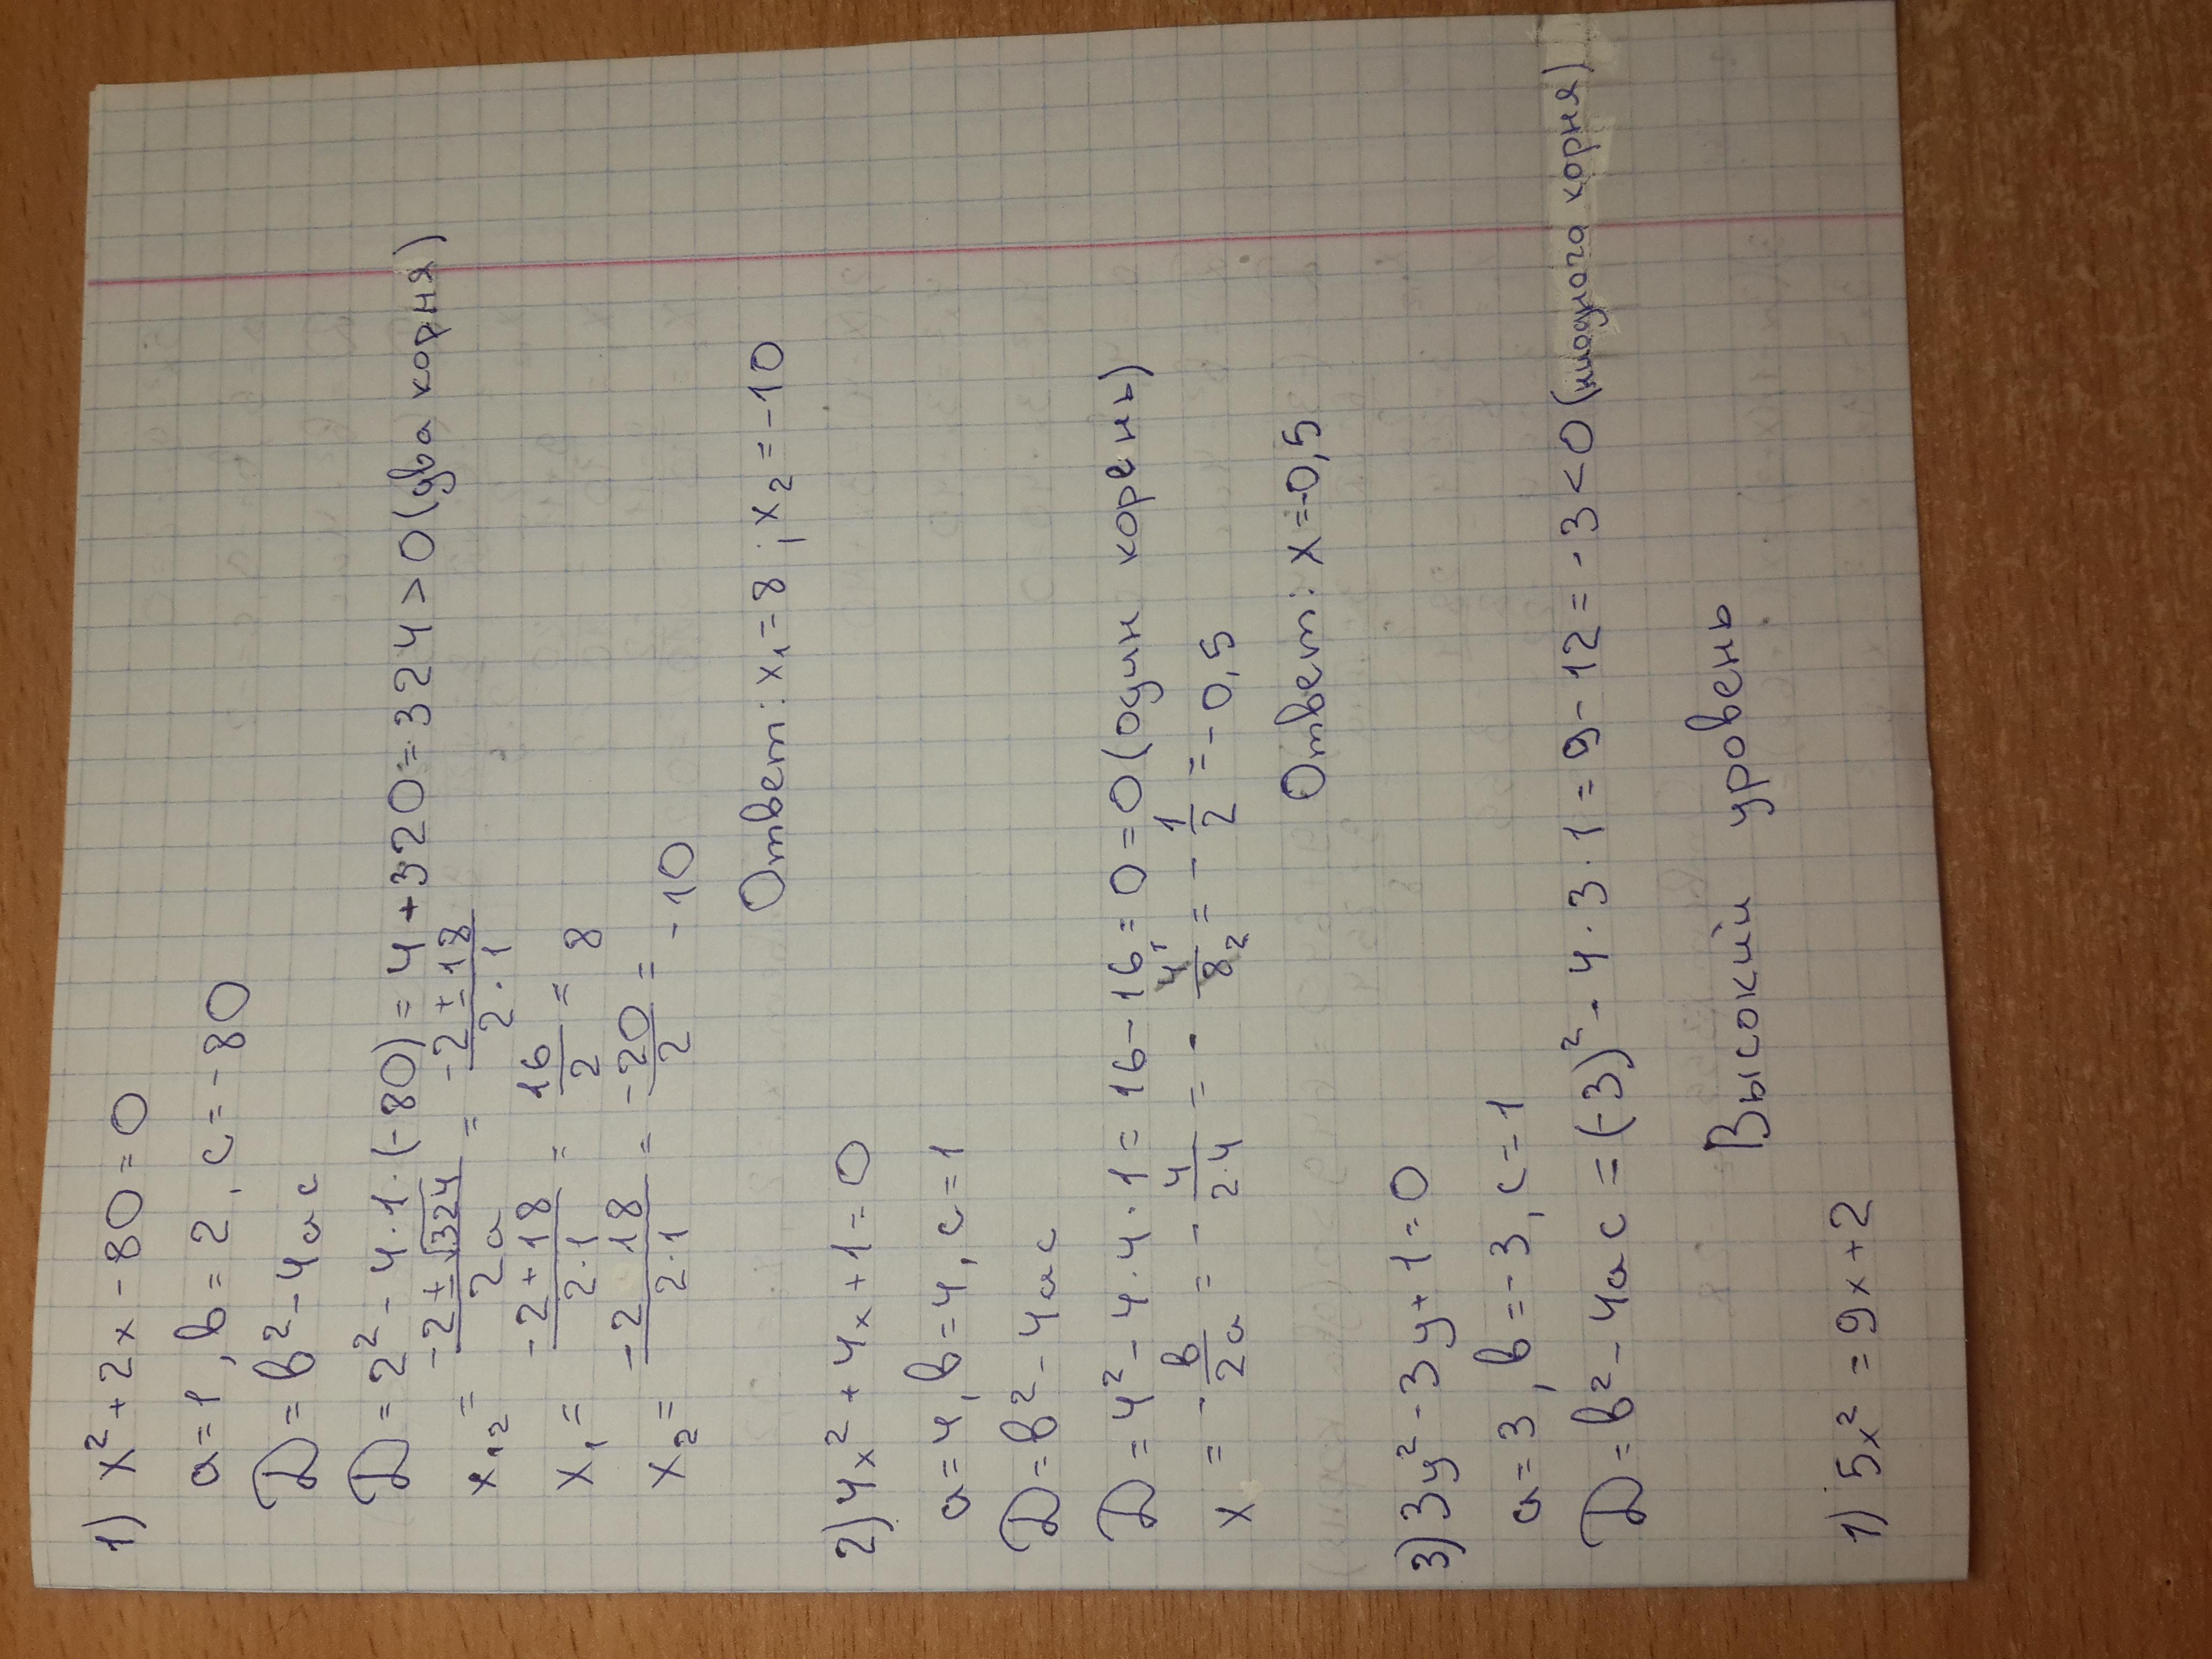 1) x² + 2x - 80 = 0
a = 1, b = 2, c = -80
D = b² - 4ac
D = 2² - 4 · 1 · (-80) = 4 + 320 = 324 > 0 (два корня)
x₁₂ = (-2 ± √324)/(2a) = (-2 ± 18)/(2 · 1)
x₁ = (-2 + 18)/(2 · 1) = 16/2 = 8
x₂ = (-2 18)/(2 · 1) = -20/2 = -10
Ответ: x₁ = 8; x₂ = -10
2) 4x² + 4x + 1 = 0
a = 4, b = 4, c = 1
D = b² - 4ac
D = 4² - 4 · 4 · 1 = 16 - 16 = 0 = 0 (один корень)
x = - b/(2a) = - 4/(2·4) = - 4¹/8₂ = - 1/2 = -0,5
Ответ: x = -0,5
3) 3y² - 3y + 1 = 0
a = 3, b = -3, c = 1
D = b² - 4ac = (-3)² - 4 · 3 · 1 = 9 - 12 = -3 < 0 (ниодного корня)
Высокий уровень
1) 5x² = 9x + 2